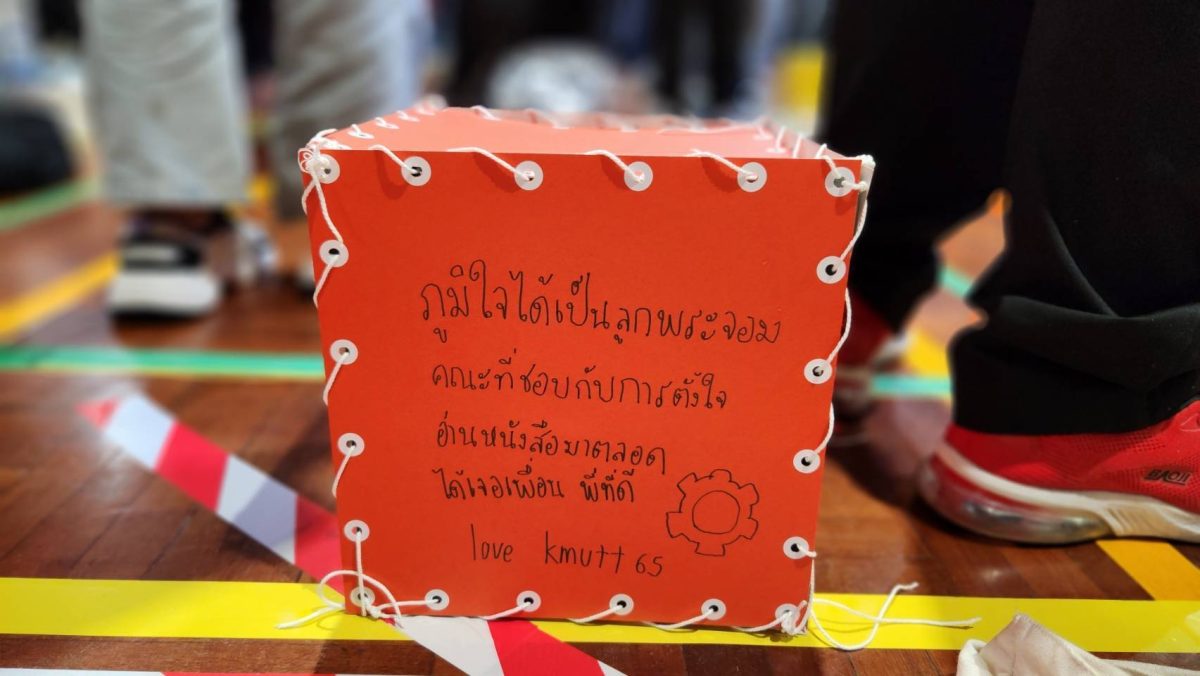 ภูมิใจได้เป็นลูกพระจอม
คณะที่ชอบกับการตั้งใจ
อ่านหนังสือมาตลอด
ได้เจอเพื่อน พี่ที่ดี
love kmutt 65
BAOJI